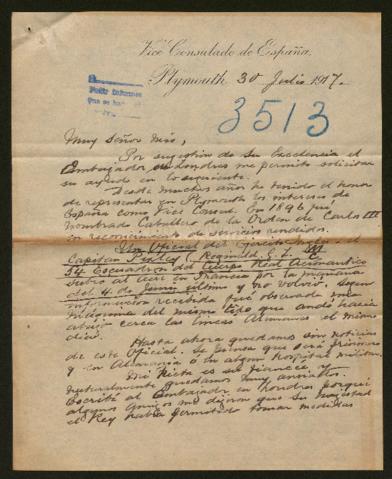 Vice Consulado de España,
Plymouth 30 Julio 1917.
3513
Muy Señor Mio,
Por sugestion de Su Excelencia el
Embajador en Londres me permito solicitar
su ayuda en lo siguiente.
Desde muchos años he tenido el honor
de representar en Plymouth los intereses de
España como Vice Consul. En 1896 fui
nombrado Caballero de la Orden de Carlos III
en reconocimiento de servicios rendidos.
Un Oficial del Ejército el
Capitan Reginald
54 Escuadron del Cuerpo Real Aeronautico
subió al aire en Francia por la mañana
del 4 de Junio ultimo y no volvió. Segun
informacion recibida fué observado una
maquina del mismo tipo que andó hacia
abajo cerca las lineas Alemanas el mismo
dia.
Hasta ahora quedamos sin noticias
de este Oficial. Se piensa que será prisionero
y en Alemania ó en algun hospital militar.
Mi Nieta es su fiancée y
naturalmente quedamos muy ansiosos.
Escribí al Embajador en Londres porqué
algunos amigos me dijeron que Su Majestad
el Rey habia permitido tomar medidas